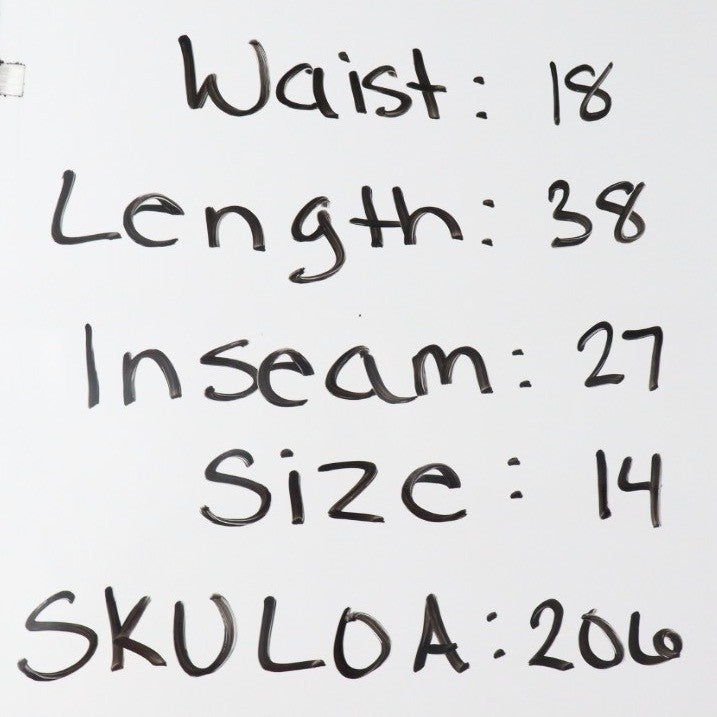 Waist: 18
Length: 38
Inseam: 27
Size: 14
SKULOA: 206